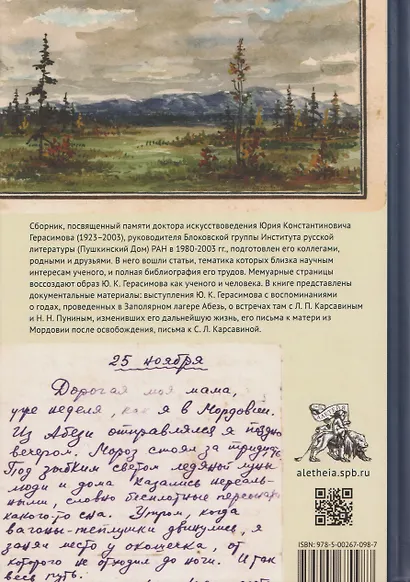 Сборник, посвященный памяти доктора искусствоведения Юрия Константиновича
Герасимова (1923–2003), руководителя Блоковской группы Института русской
литературы (Пушкинский Дом) РАН в 1980-2003 гг., подготовлен его коллегами,
родными и друзьями. В него вошли статьи, тематика которых близка научным
интересам ученого, и полная библиография его трудов. Мемуарные страницы
воссоздают образ Ю. К. Герасимова как ученого и человека. В книге представлены
документальные материалы: выступления Ю. К. Герасимова с воспоминаниями
о годах, проведенных в Заполярном лагере Абезь, о встречах там с Л. П. Карсавиным
и Н. Н. Пуниным, изменивших его дальнейшую жизнь, его письма к матери из
Мордовии после освобождения, письма к С. Л. Карсавиной.
25 ноября
Дорогая моя мама,
уже неделя, как я в Мордовии.
Из Абези отправлялся я поздно
вечером. Мороз стоял за тридцать
Под зыбким светом ледяной луны
люди и дома казались нереаль-
ными, словно бесплотные персонажи
какого-то сна. Утром, когда
вагоны-теплушки двинулись, я
занял место у окошечка, от
которого не отходил до ночи. И так
весь путь.
aletheia.spb.ru
ISBN: 978-5-00267-098-7